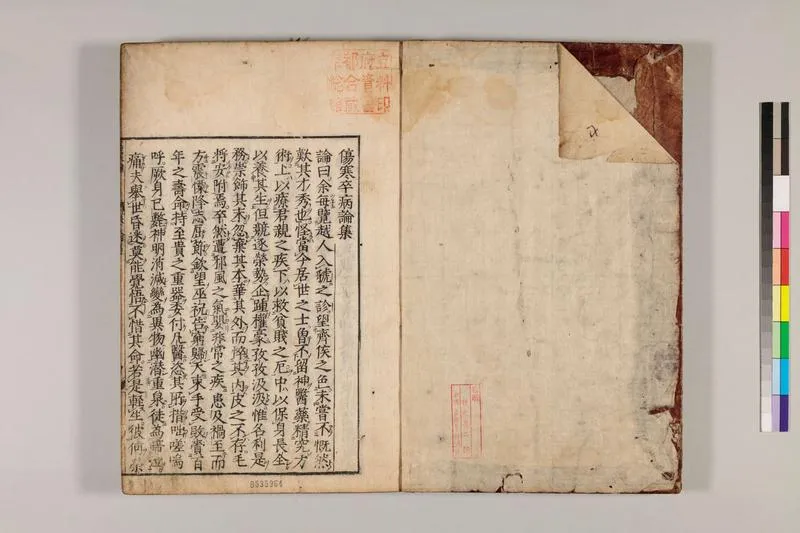 傷寒卒病論集
論曰余每覽越人入虢之診望齊侯之色未嘗不慨然
歎其才秀也怪當今居世之士曽不留神醫藥精究方
術上以療君親之疾下以救貧賤之厄中以保身長全
以養其生但競逐榮勢企踵權豪孜孜汲汲惟名利是
務崇飾其末忽棄其本華其外而悴其内皮之不存毛
將安附焉卒然遭邪風之氣嬰非常之疾患及禍至而
方震慄降志屈節欽望巫祝告窮歸天束手受敗賫百
年之壽命持至貴之重器委付凡醫恣其所措咄嗟嗚
呼厥身已斃神明消滅變為異物幽潜重泉徒為啼泣
痛夫舉世昏迷莫能覺悟不惜其命若是輕生彼何榮
8535964